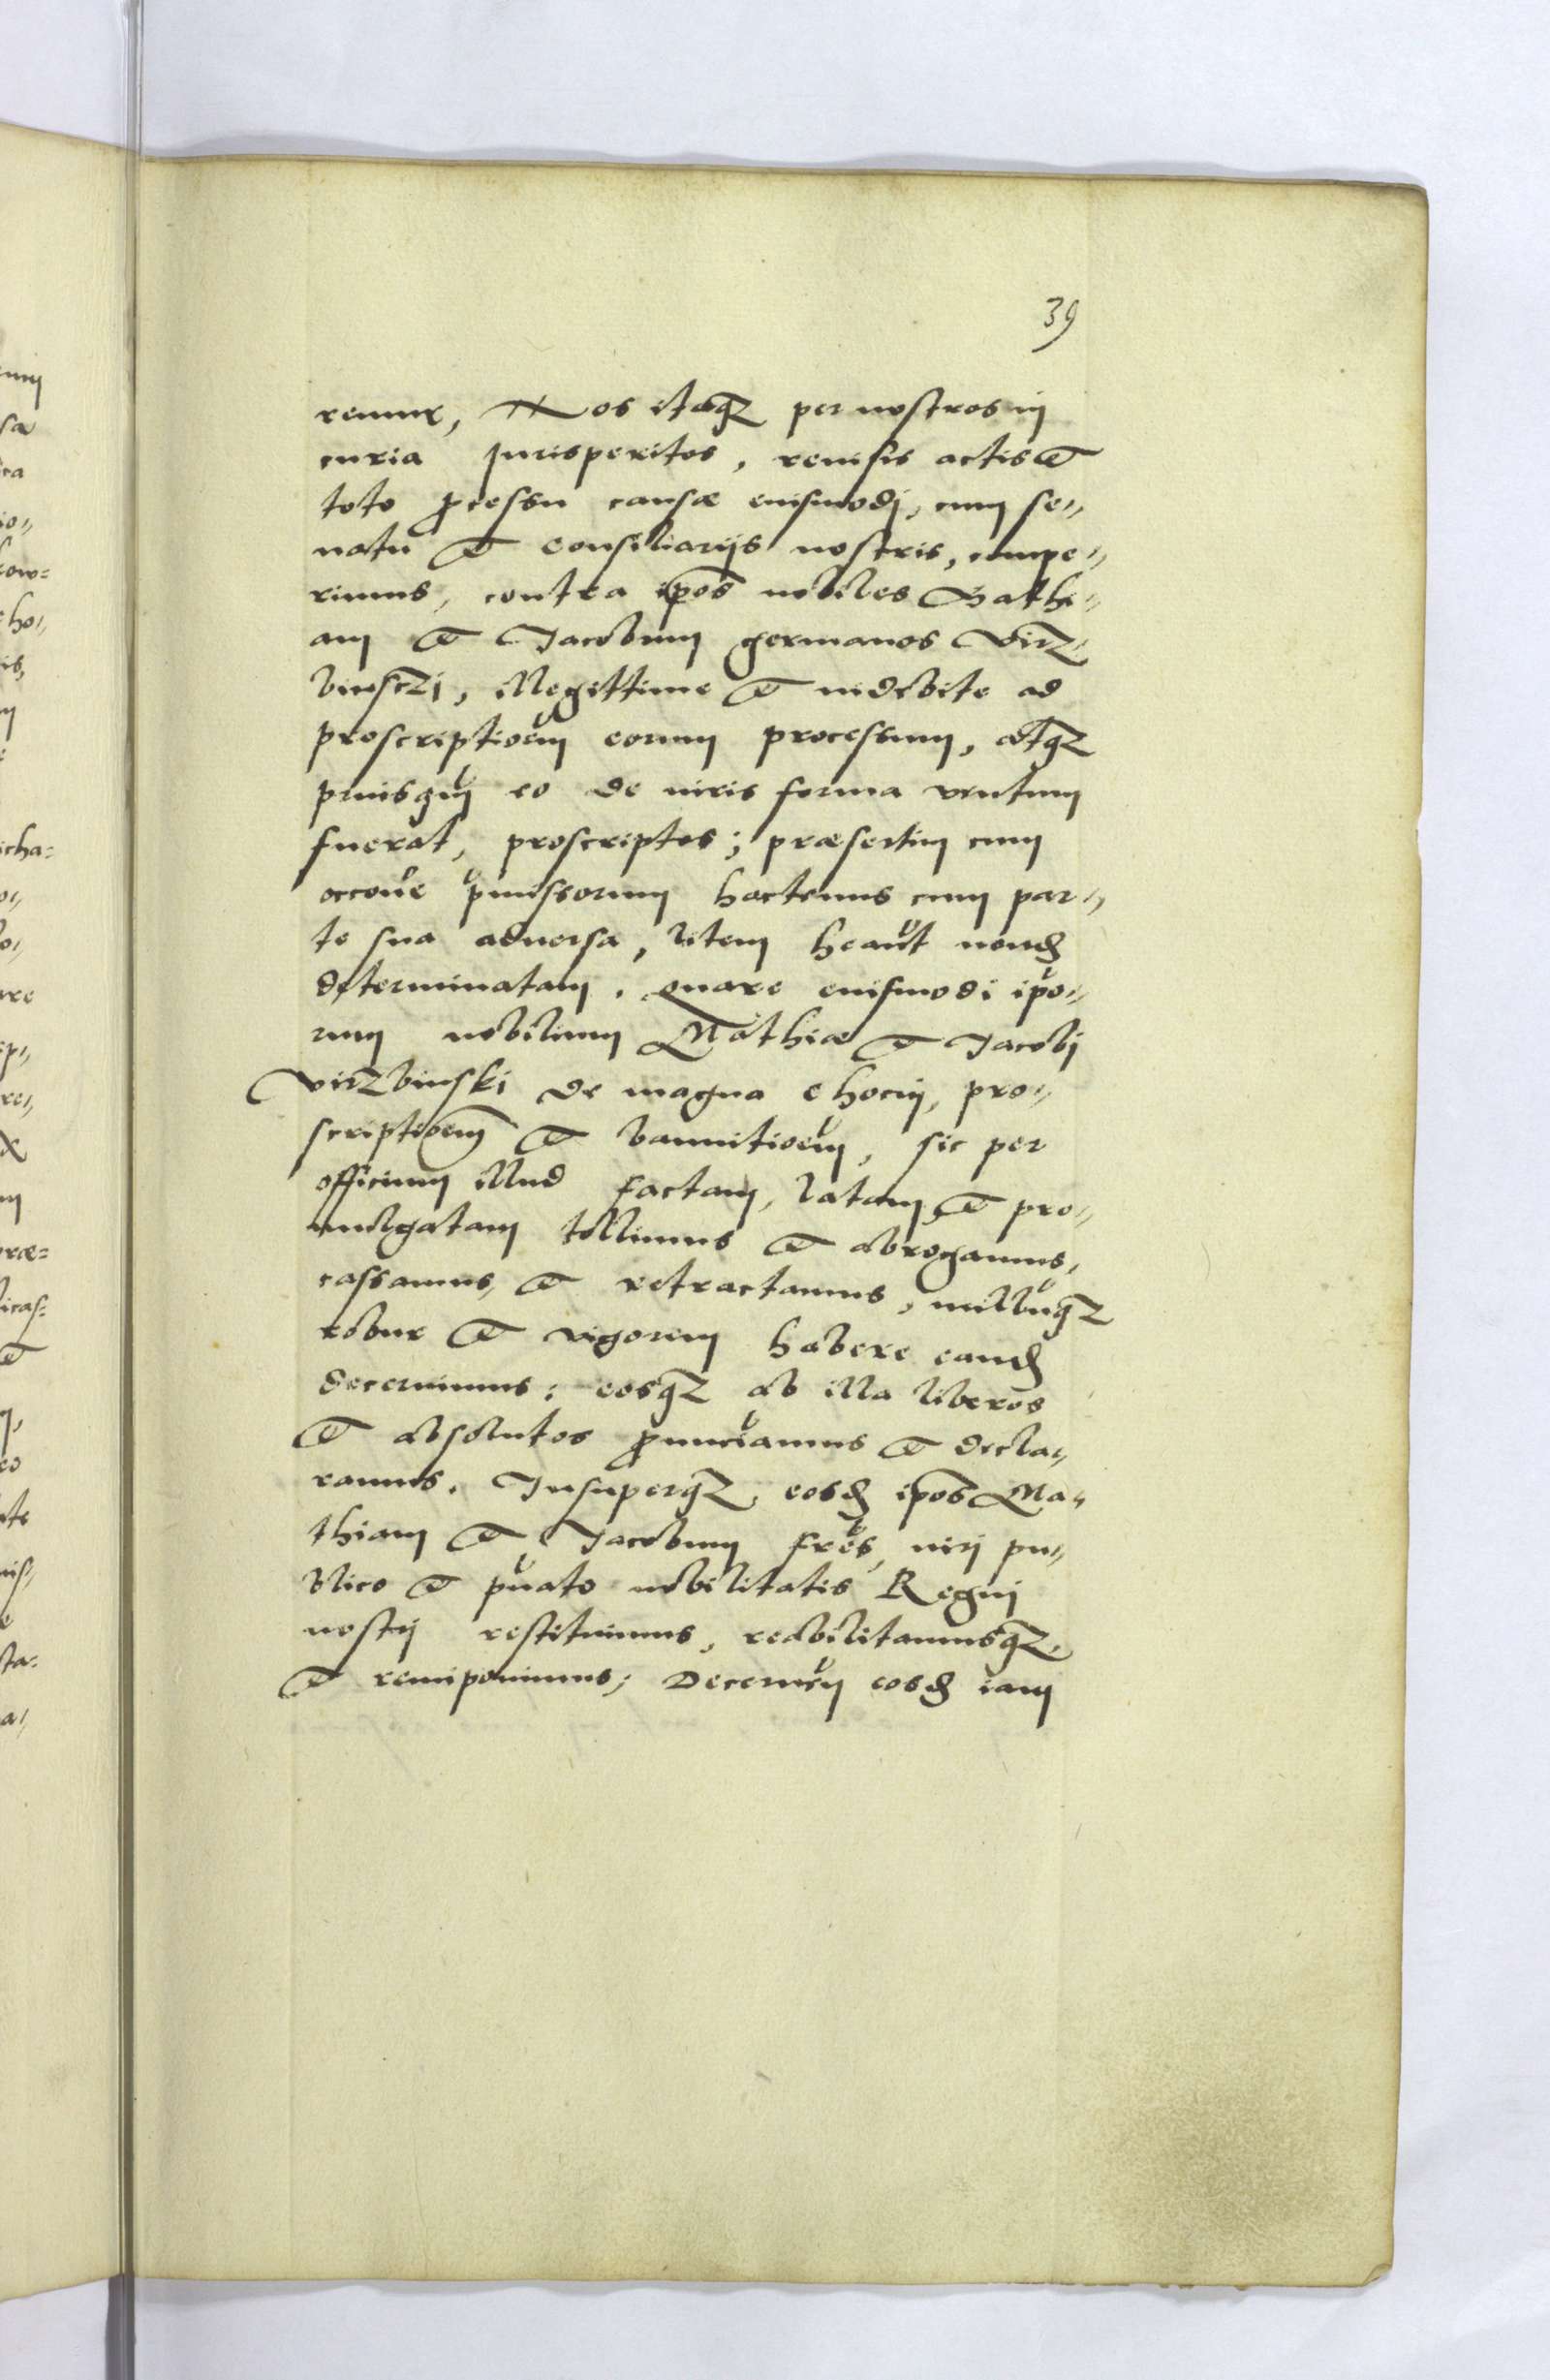 39
remur, Nos itaqz per nostros in
curia Jurisperitos, reuisis actis et
toto pcessu causæ eiusmodj, cum se„
natu et consiliarijs nostris, compe„
rimus, contra ipos nobiles Mathi„
am et Jacobum germanos Virz„
binsczi, illegittime et indebite ad
proscriptioem eorum processum, atqz
priusqm eo de iuris forma uentum
fuerat, proscriptos; præsertim cum
occone pmissorum hactenus cum par„
te sua aduersa, litem heant nond
determinatam. Quare eiusmodi ipo„
rum nobilium Mathiæ et Jacobj
Virzbinski de magna Chocin, pro„
scriptioem et bannitioem, sic per
officium illud factam, latam, et pro„
mulgatam tollimus et abrogamus,
cassamus, et retractamus, nullumqz
robur et vigorem habere eand
decernimus: eosqz ab illa liberos
et absolutos pnunciamus et decla„
ramus. Insuperqz, eosd ipos Ma„
thiam et Jacobum fres, iuri pu„
blico et puato nobilitatis Regni
nostri restituimus, reabilitamusqz,
et reimponimus; Decernen eosd iam
ho„
is,
icha=
ræ=
icas=